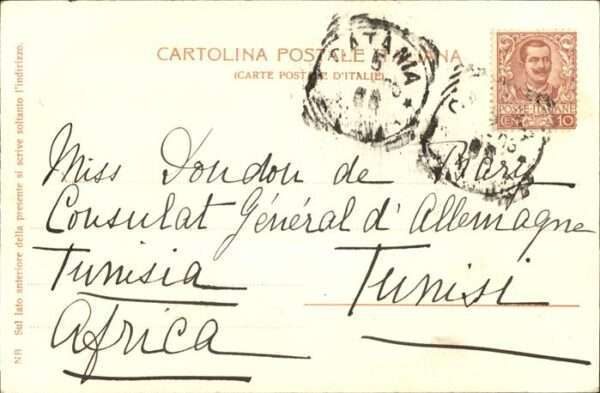 CARTOLINA POSTALE ITALIANA
(CARTE POSTALE D'ITALIE)
CATANIA
5
POSTE ITALIANE
CENTESIMI 10
Miss Dondon de Bary
Consulat Général d'Allemagne
Tunisia Tunisi
Africa
NB Sul lato anteriore della presente si scrive soltanto l'indirizzo.